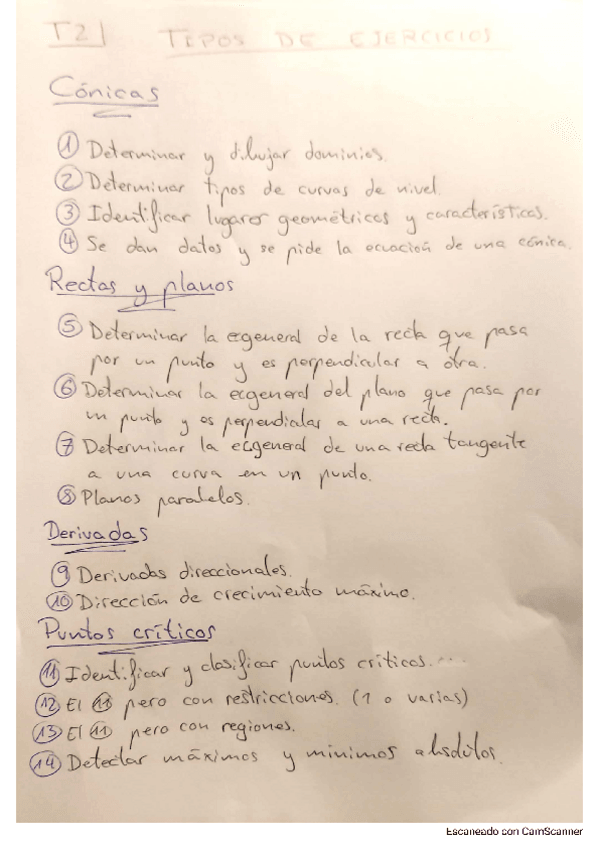 T2| TIPOS DE EJERCICIOS
Cónicas
① Determinar y dibujar dominios.
② Determinar tipos de curvas de nivel.
③ Identificar lugares geométricos y características.
④ Se dan datos y se pide la ecuación de una cónica.
Rectas y planos
⑤ Determinar la ecgeneral de la recta que pasa
por un punto y es perpendicular a otra.
⑥ Determinar la ecgeneral del plano que pasa por
un punto y es perpendialar a una recta.
⑦ Determinar la ecgeneral de una recta tangente
a una curva en un punto.
⑧ Planos paralelos.
Derivadas
⑨ Derivadas direccionales.
⑩ Dirección de crecimiento máximo.
Puntos críticos
⑪ Identificar y clasificar puntos críticos....
⑫ El ⑪ pero con restricciones. (1 o varias)
⑬ El ⑪ pero con regiones.
⑭ Detectar máximos y mínimos absolutos.
Escaneado con CamScanner